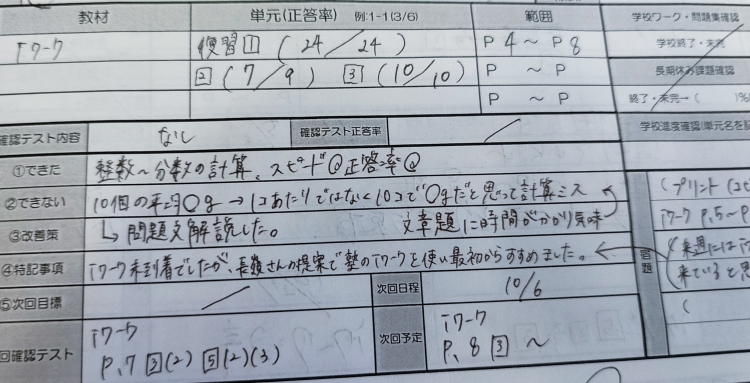 教材 単元(正答率) 例:1-1(3/6) 範囲 学校ワーク・問題集確認
iワーク 復習① (24/24) P4〜P8 学校終了・未完
② (7/9) ③ (10/10) P 〜 P 長期休み課題確認
P 〜 P 終了・未完→( )%
確認テスト内容 なし 確認テスト正答率 学校進度確認(単元名を記
①できた 整数〜分数の計算、スピード◎正答率◎
②できない 10個の平均○g→1コあたりではなく10コで○gだと思って計算ミス (プリント
文章題に時間がかかり気味
③改善策 ↳問題文解説した。 iワークP.5〜P
④特記事項 iワーク未到着でしたが、さんの提案で塾のiワークを使い最初からすすめました。 宿題 (来週には
来ていると思
⑤次回目標 次回日程 10/6 (
回確認テスト iワーク 次回予定 iワーク
P.7 ②(2) ⑤(2)(3) P.8 ③ 〜